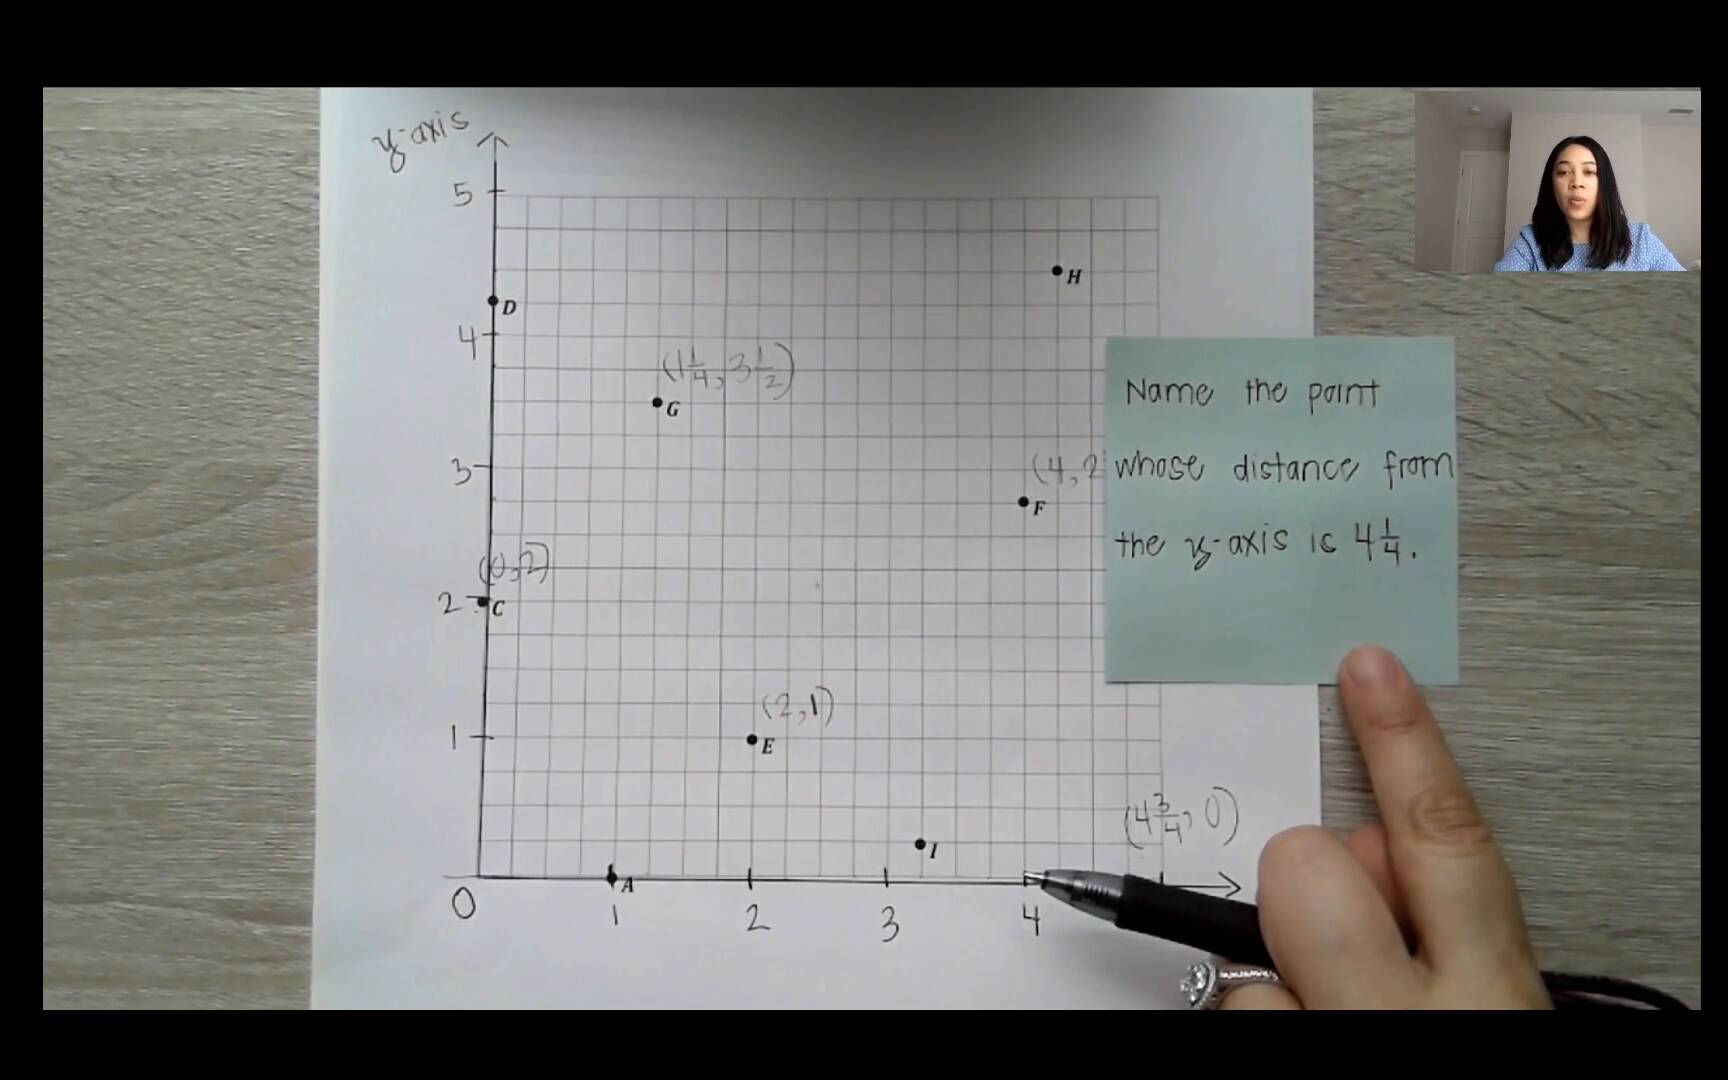 y-axis
5
H
D
4
(1 1/4, 3 1/2)
G
Name the point
3
(4, 2
whose distance from
F
the y-axis is 4 1/4.
(0, 2)
2
C
(2, 1)
1
E
(4 3/4, 0)
I
A
0
1
2
3
4